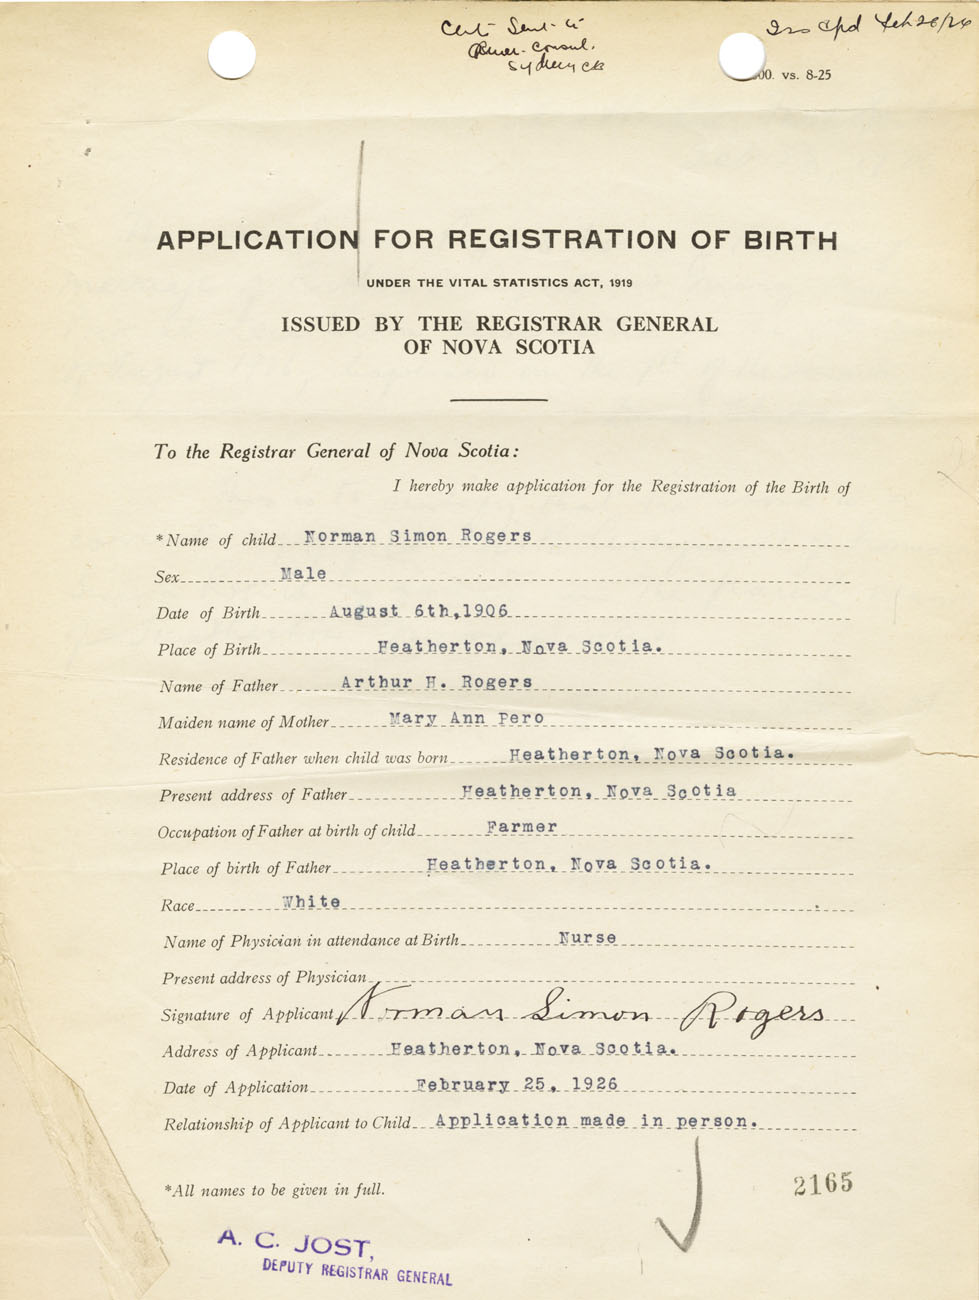 Cert Sent to
Amer. Consul.
Sydney CB
Iss Cpd Feb 26/26
00. vs. 8-25
APPLICATION FOR REGISTRATION OF BIRTH
UNDER THE VITAL STATISTICS ACT, 1919
ISSUED BY THE REGISTRAR GENERAL
OF NOVA SCOTIA
To the Registrar General of Nova Scotia:
I hereby make application for the Registration of the Birth of
*Name of child Norman Simon Rogers
Sex Male
Date of Birth August 6th, 1906
Place of Birth Heatherton, Nova Scotia.
Name of Father Arthur H. Rogers
Maiden name of Mother Mary Ann Pero
Residence of Father when child was born Heatherton, Nova Scotia.
Present address of Father Heatherton, Nova Scotia
Occupation of Father at birth of child Farmer
Place of birth of Father Heatherton, Nova Scotia.
Race White
Name of Physician in attendance at Birth Nurse
Present address of Physician
Signature of Applicant Norman Simon Rogers
Address of Applicant Heatherton, Nova Scotia.
Date of Application February 25, 1926
Relationship of Applicant to Child Application made in person.
*All names to be given in full.
2165
A. C. JOST,
DEPUTY REGISTRAR GENERAL